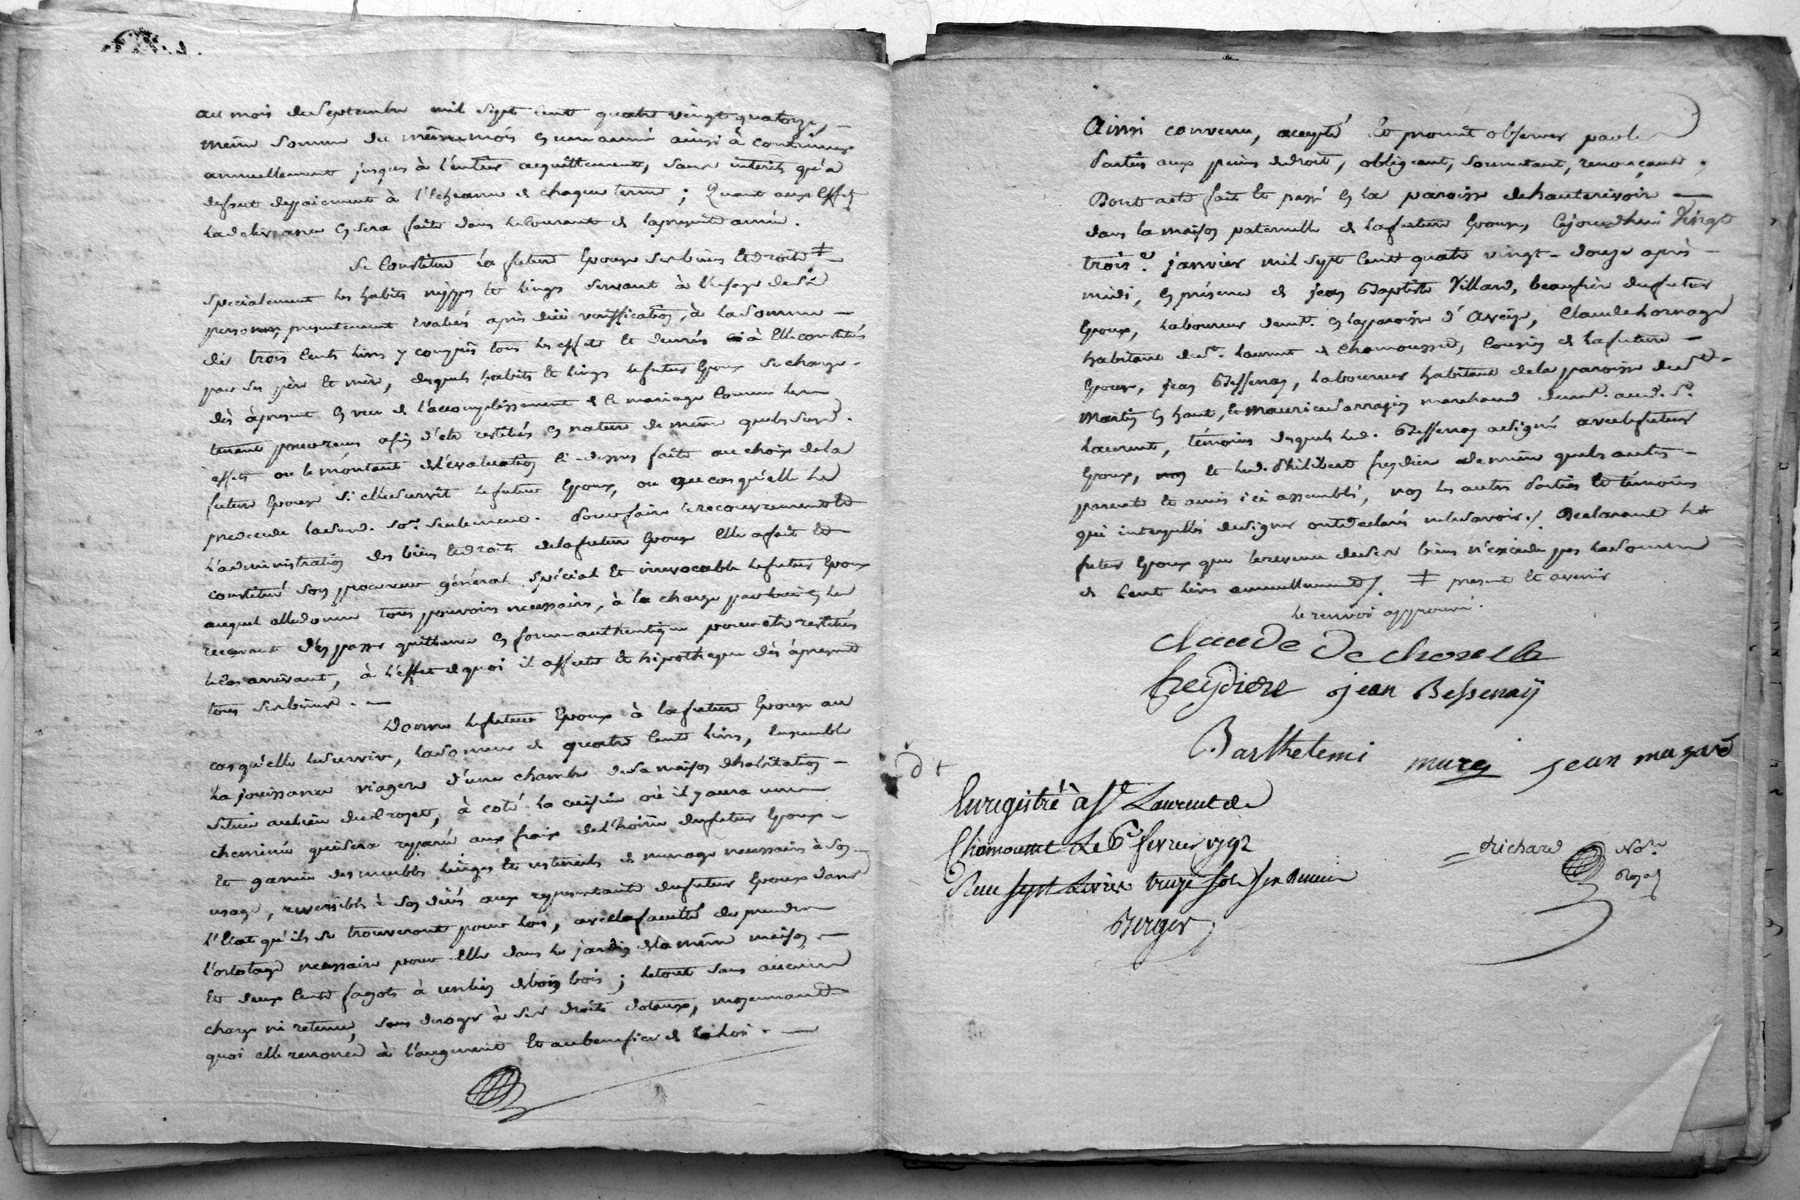 au mois de septembre mil sept cent quatre vingt quatorze,
meme somme du meme mois en une année ainsi à continuer
annuellement jusques à l'entier acquittement, sans interets qu'a
defaut de payement à l'échéance de chaque terme ; Quant aux effets
la delivrance en sera faite dans le courant de la presente année.
Se Constitue la future Epouse ses biens et droits ‡
specialement les habits nippes et linges servant à l'usage de sa
personne, presentement evalués après due verification, à la somme
de trois cents livres y compris tous les effets et denrés à elle constitués
par ses père et mère, desquels habits et linges le futur Epoux se charge
dès àpresent en vue de l'accomplissement de ce mariage comme
tenant pour reçus afin d'etre restitués en nature de même quels
effets ou le montant de l'evaluation ci-dessus faite au choix de la
future Epouse si elle survit le futur Epoux, ou que cas qu'elle le
predecede lad. somme seulement. Pour faire le recouvrement et
l'administration des biens et droits de la future Epouse elle a fait et
constitué son procureur général special et irrevocable le futur Epoux
auquel elle donne tous pouvoirs necessaires, à la charge par lui en les
recevant d'en passer quittance en forme authentique pour etre restitués
le cas arrivant, à l'effet de quoi il affecte et hipotheque dès àpresent
tous ses biens.
Donne le futur Epoux à la future Epouse au
cas qu'elle le survive, la somme de quatre cents livres, ensemble
la jouissance viagere d'une chambre de sa maison d'habitation
située au lieu du Crozet, à coté la cuisine où il y aura une
cheminée qui sera reparée aux frais de l'hoirie du futur Epoux
et garnie des meubles linges et ustenciles de menage necessaires à son
usage, reversible à son décès aux representants du futur Epoux dans
l'état qu'ils se trouveront pour lors, avec la faculté de prendre
l'ortolage necessaire pour elle dans le jardin de la même maison
et deux cents fagots à un lien de bon bois ; le tout sans aucune
charge ni retenue, sans deroger à ses droits dotaux, moyennant
quoi elle renonce à l'augment et au benefice de la loi.
Ainsi convenu, accepté et promit observer par les
Parties aux peines de droit, obligeant, soumetant, renonçant,
Dont acte fait et passé en la paroisse de hauterivoire
dans la maison paternelle de la future Epouse, Cejourdhui Vingt
trois e. janvier mil sept cent quatre vingt-douze après
midi, en présence de jean Baptiste Villard, beaufrère du futur
Epoux, laboureur demt. en la paroisse d'Aveize, Claude
habitant de st. Laurent de Chamousset, Cousin de la future
Epouse, jean Bessenay, laboureur habitant de la paroisse de st
Martin en haut, et marchand demt. aud. st.
Laurent, témoins desquels led. Bessenay a signé avec le futur
Epoux, et led. Philibert freydiere de même quels autres
parents et amis ici assemblés, non les autres Parties et témoins
qui interpellés de signer ont declaré ne le savoir./ Declarant le
futur Epoux que le revenu de ses biens n'excede pas la somme
de cent livres annuellement/. ‡ present et avenir
le renvoi approuvé.
Claude De
freydiere jean Bessenay
Barthelemi jean
dt
Enregistré à St. Laurent de
Chamousset Le 6e fevrier 1792
Reçu sept Livres treize sols six deniers
Berger
Richard Nore
Royal